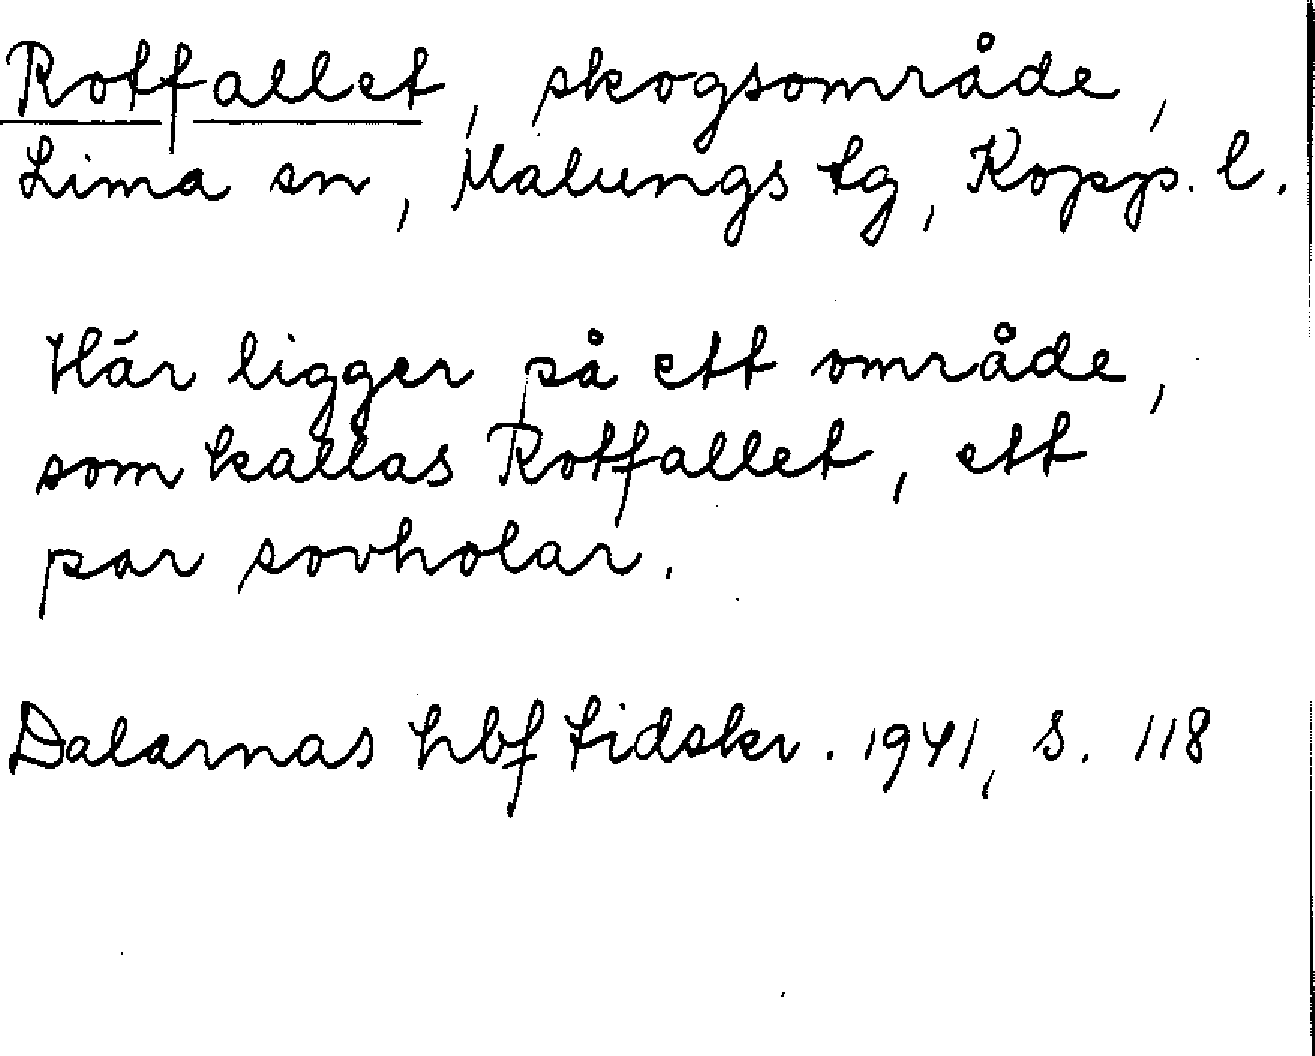 Rotfallet, skogsområde,
Lima sn, Malungs tg, Kopp. l.
Här ligger på ett område,
som kallas Rotfallet, ett
par sovholar.
Dalarnas hbf tidskr. 1941, s. 118